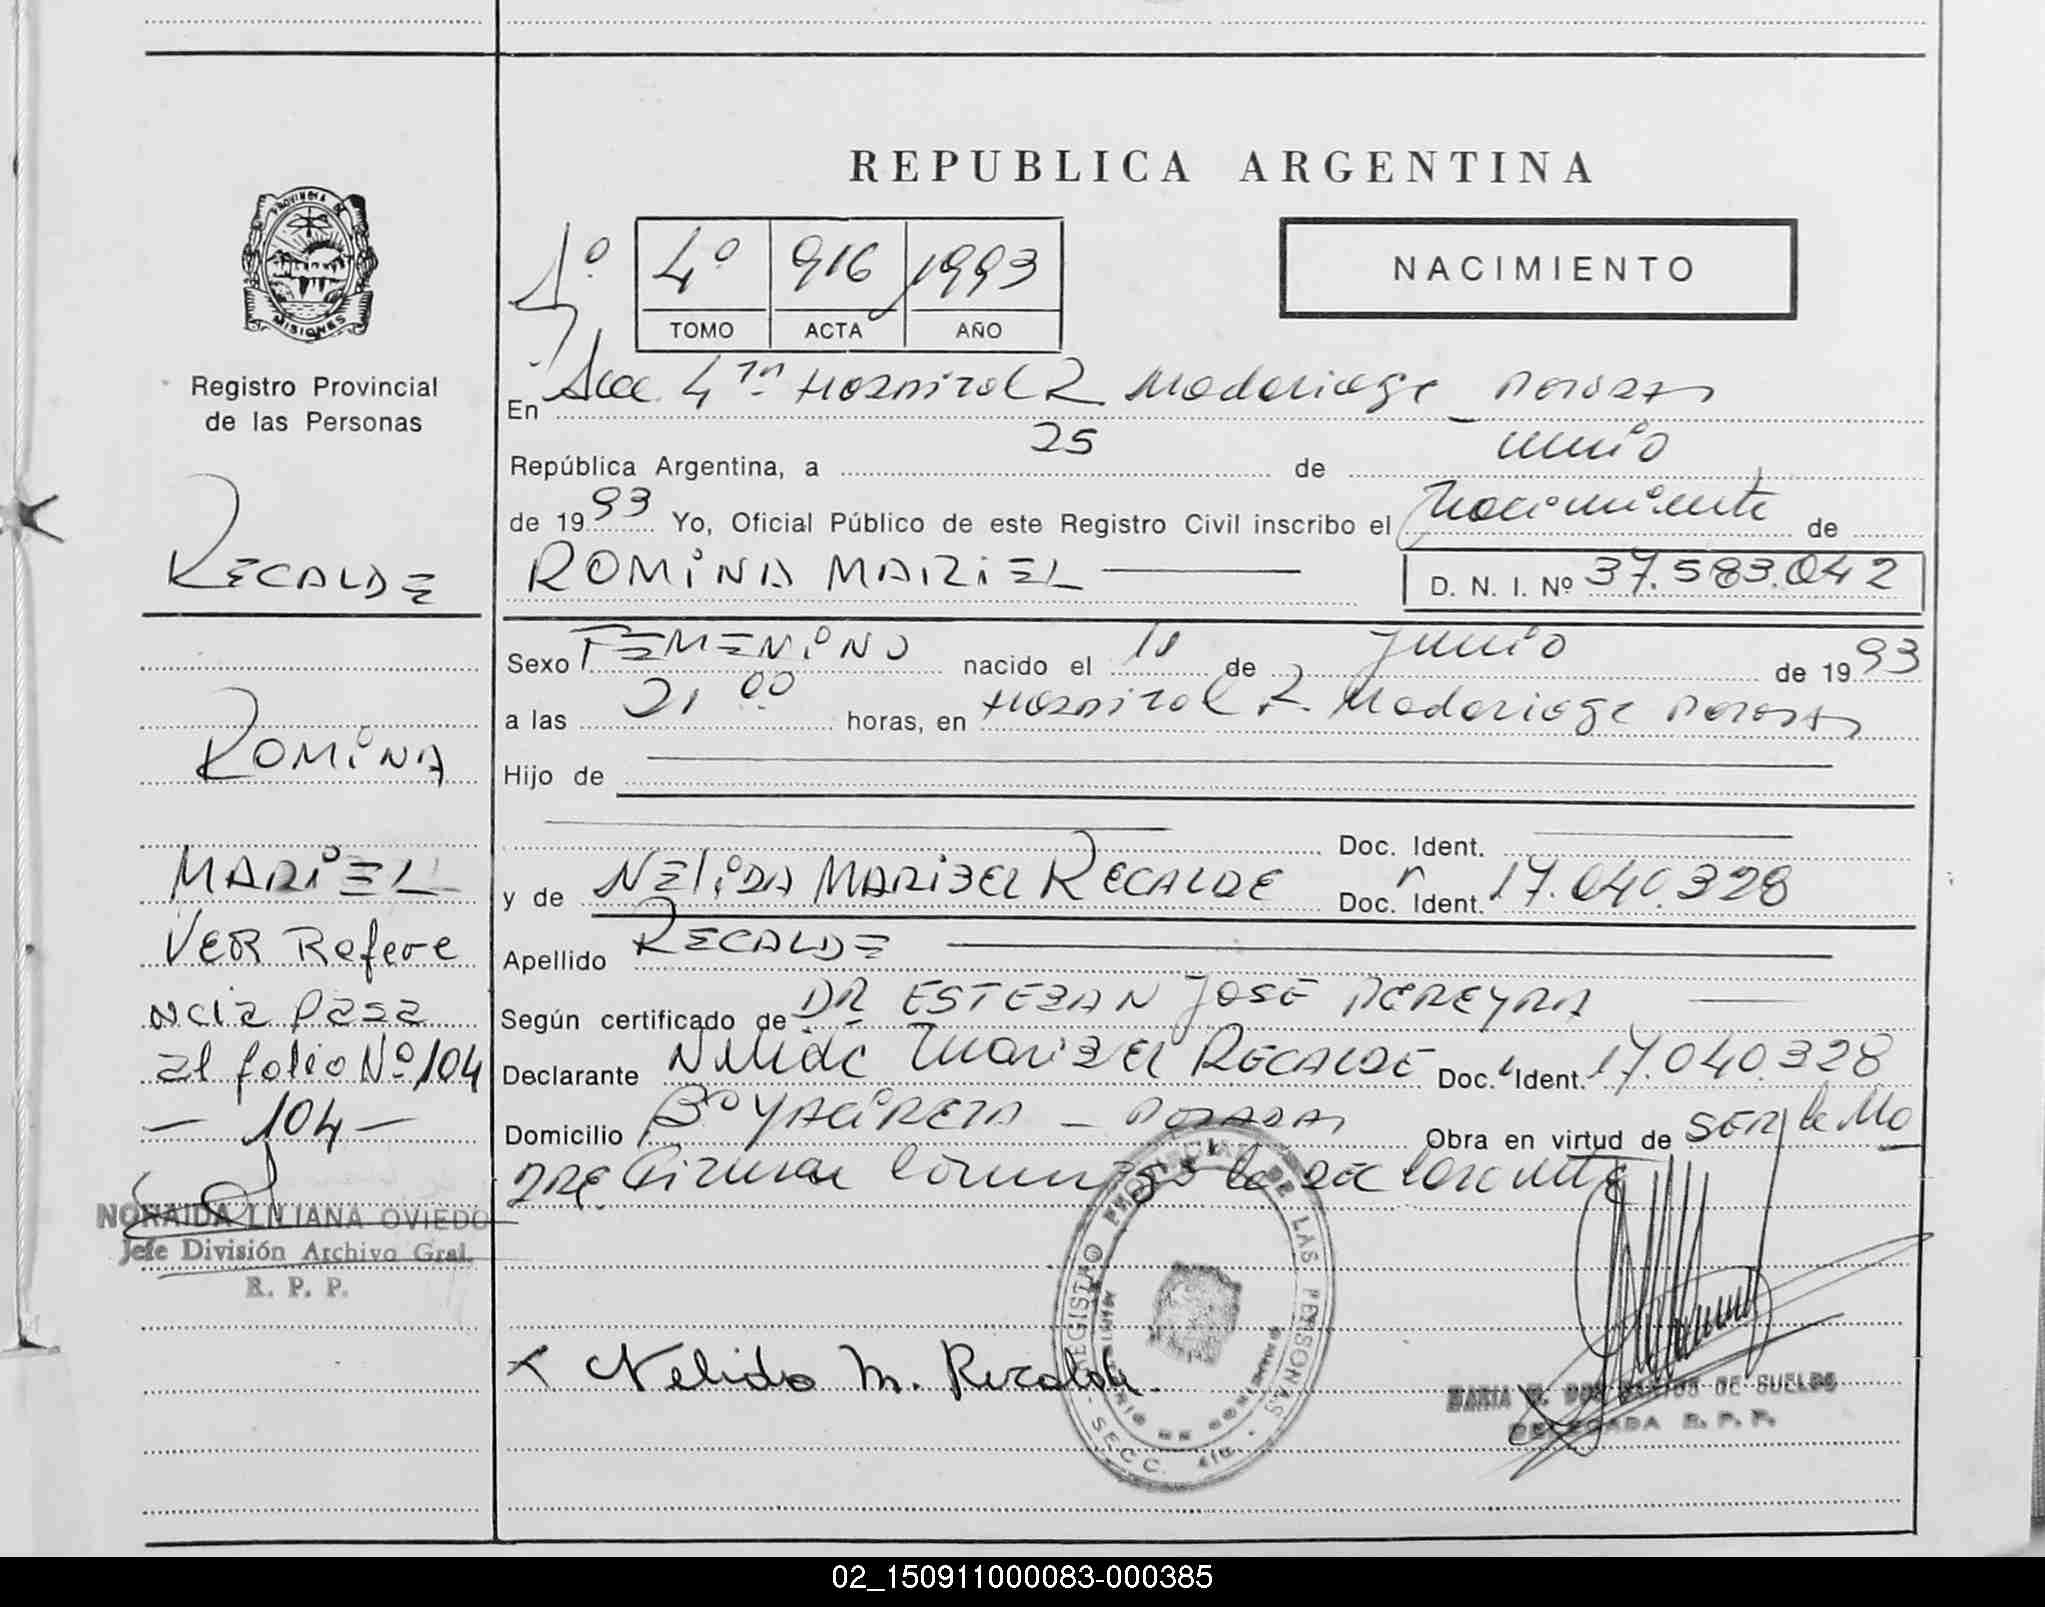 REPUBLICA ARGENTINA
PROVINCIA DE
MISIONES
Registro Provincial
de las Personas
1º
4º 916 1993
TOMO ACTA AÑO
NACIMIENTO
En Secc. 4ta Hospital R. Madariaga - Posadas
República Argentina, a 25 de Junio
de 1993 Yo, Oficial Público de este Registro Civil inscribo el Nacimiento de
RECALDE
ROMINA MARIEL
D. N. I. Nº 37.583.042
Sexo FEMENINO nacido el de Junio de 1993
a las 21 00 horas, en Hospital R. Madariaga Posadas
ROMINA
Hijo de
Doc. Ident.
MARIEL
y de NELIDA MARIBEL RECALDE Doc. Ident. 17.040.328
VER Refere
Apellido RECALDE
ncia Pasa
Según certificado de DR ESTEBAN JOSE PEREYRA
al folio Nº 104
Declarante Nelida Maribel RECALDE Doc. Ident. 17.040.328
- 104 -
Domicilio Bº YACIRETA - POSADAS Obra en virtud de SER la Ma
DRE Firma conmigo la declarante
NORAIDA LILIANA OVIEDO
Jefe División Archivo Gral.
R. P. P.
REGISTRO PROVINCIAL DE LAS PERSONAS
SECC. 4ta
x Nelida M. Recalde.
MARIA DE SUELDO
DELEGADA R. P. P.
02_150911000083-000385